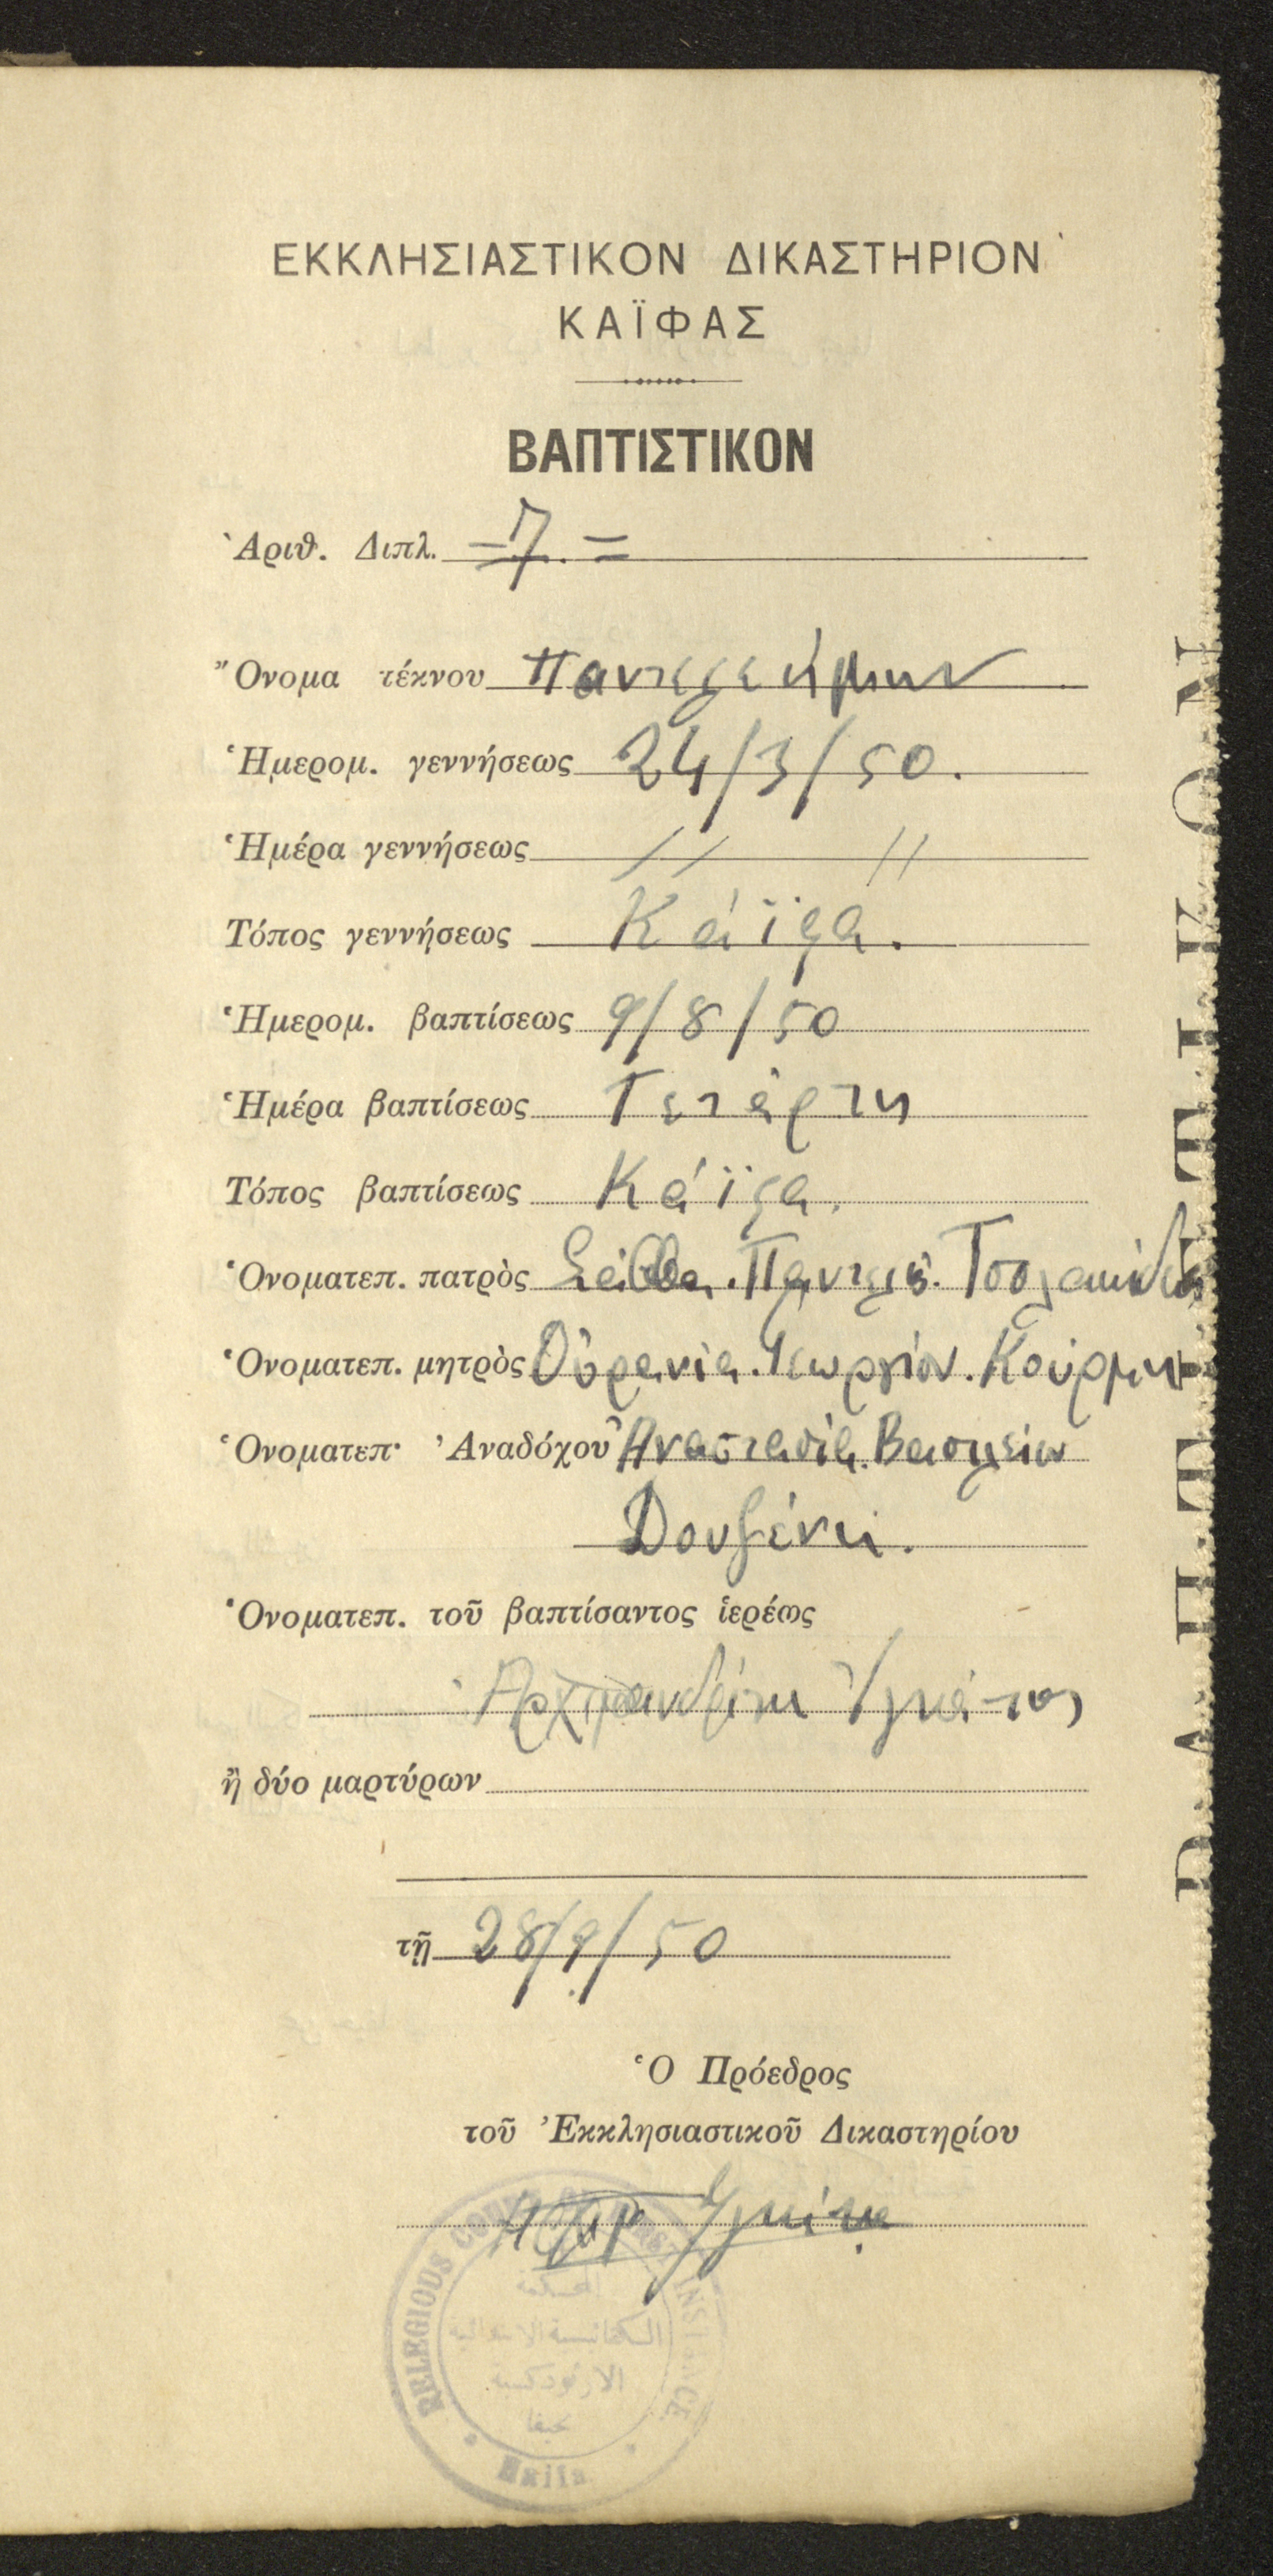 ΕΚΚΛΗΣΙΑΣΤΙΚΟΝ ΔΙΚΑΣΤΗΡΙΟΝ
ΚΑΪΦΑΣ
ΒΑΠΤΙΣΤΙΚΟΝ
Ἀριθ. Διπλ. =7.=
Ὄνομα τέκνου Παντελεήμων
Ἡμερομ. γεννήσεως 24/3/50.
Ἡμέρα γεννήσεως // //
Τόπος γεννήσεως Κάϊφα.
Ἡμερομ. βαπτίσεως 9/8/50
Ἡμέρα βαπτίσεως Τετάρτη
Τόπος βαπτίσεως Κάϊφα.
Ὀνοματεπ. πατρὸς Σάββα. Παντελῆ. Τσολακίδη
Ὀνοματεπ. μητρὸς Οὐρανία. Γεωργίου. Κούρμη
Ὀνοματεπ. Ἀναδόχου Ἀναστασία. Βασιλείου
Δουζένη.
Ὀνοματεπ. τοῦ βαπτίσαντος ἱερέως
Ἀρχιμανδρίτη Ἰγνάτιος
ἢ δύο μαρτύρων
τῇ 28/9/50
Ὁ Πρόεδρος
τοῦ Ἐκκλησιαστικοῦ Δικαστηρίου
RELEGIOUS COURT INSTANCE
المحكمة
الكنائسية الابتدائية
الارثوذكسية
بحيفا
Haifa